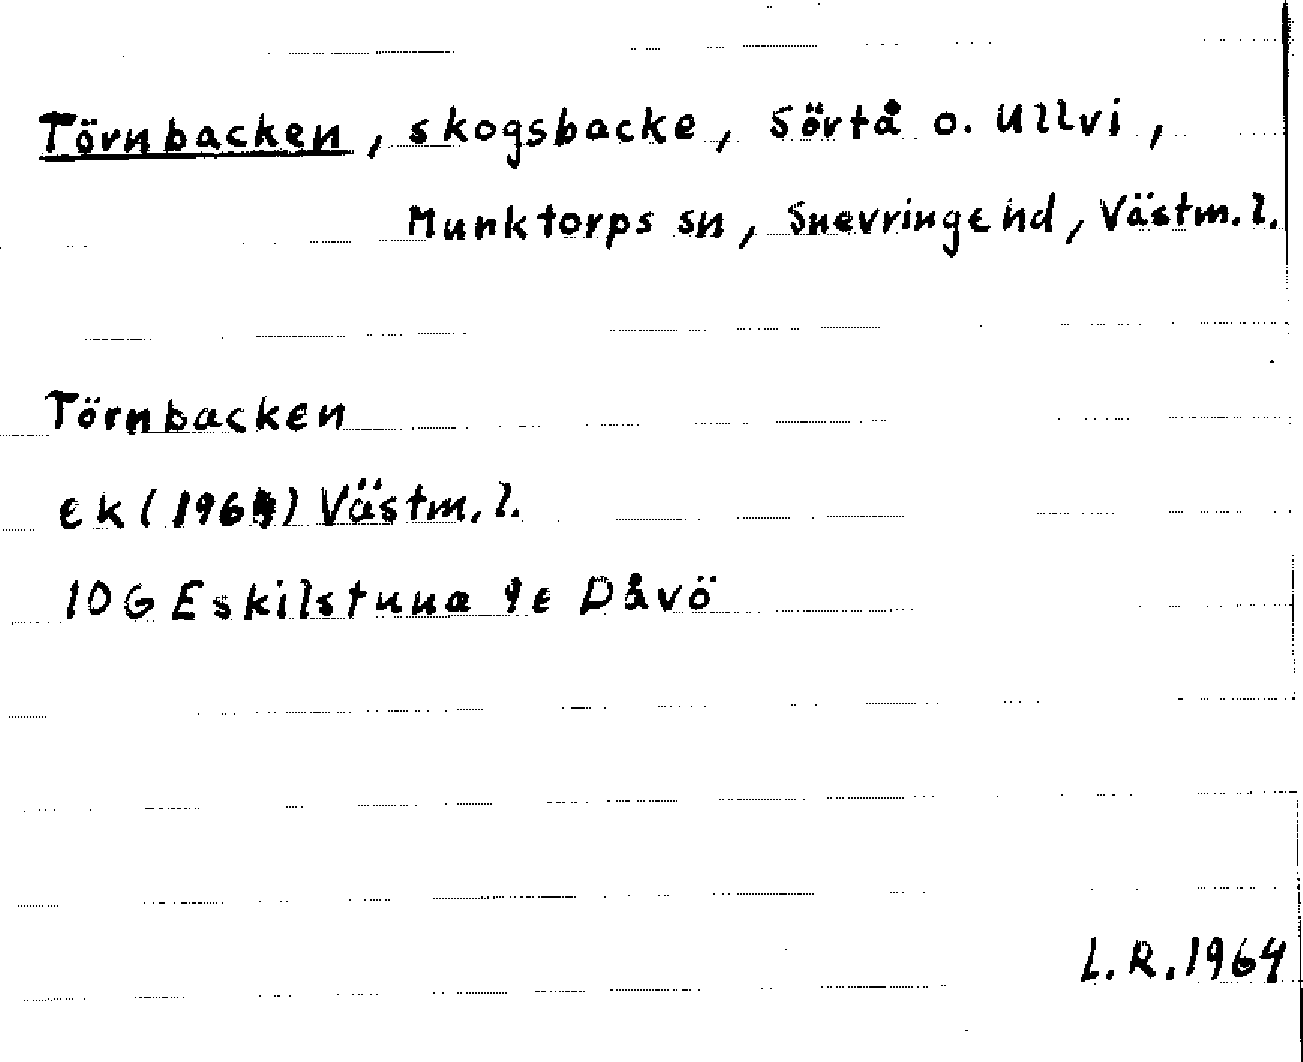 Törnbacken, skogsbacke, Sörtå o. Ullvi,
Munktorps sn, Snevringe hd, Västm. l.
Törnbacken
ek (1964) Västm. l.
10G Eskilstuna 9e Dåvö
L. R. 1964